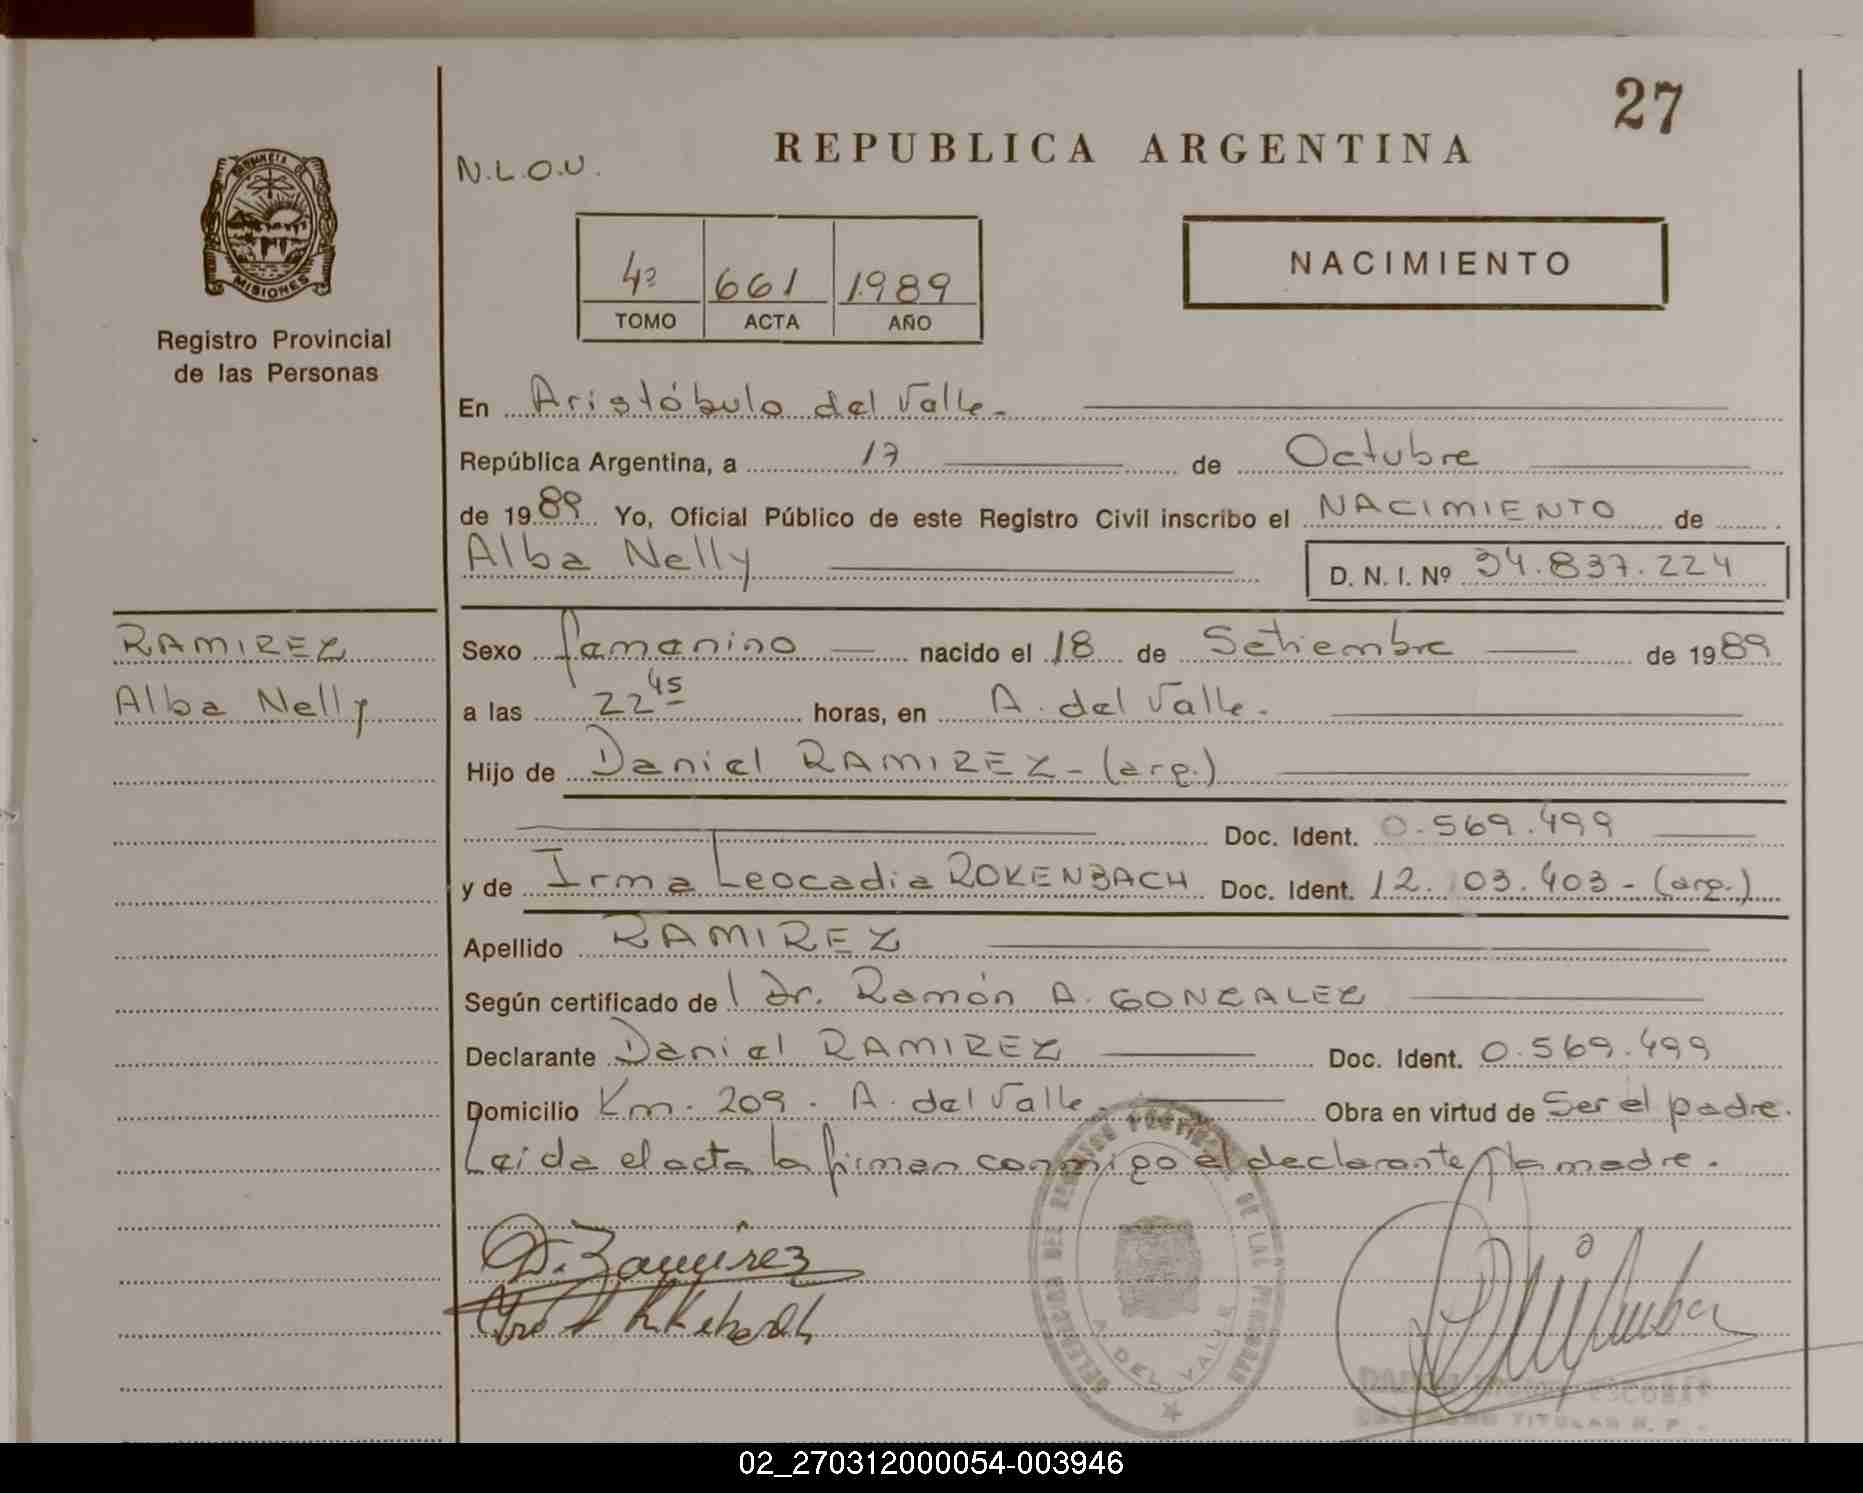 27
REPUBLICA ARGENTINA
N.L.O.U.
NACIMIENTO
4º 661 1989
TOMO ACTA AÑO
MISIONES
Registro Provincial
de las Personas
En Aristóbulo del Valle.
República Argentina, a 17 de Octubre
de 1989 Yo, Oficial Público de este Registro Civil inscribo el NACIMIENTO de
Alba Nelly D. N. I. Nº 34.837.224
RAMIREZ
Alba Nelly
Sexo femenino nacido el 18 de Setiembre de 1989
a las 22 45 horas, en A. del Valle.
Hijo de Daniel RAMIREZ - (arg.)
Doc. Ident. 0.569.499
y de Irma Leocadia ROKENBACH Doc. Ident. 12. 03.403 - (arg.)
Apellido RAMIREZ
Según certificado de l Dr. Ramón A. GONZALEZ
Declarante Daniel RAMIREZ Doc. Ident. 0.569.499
Domicilio Km. 209. A. del Valle. Obra en virtud de Ser el padre.
Leida el acta la firman conmigo el declarante y la madre.
D. Ramirez
DEL VALLE
TITULAR R. P.
02_270312000054-003946